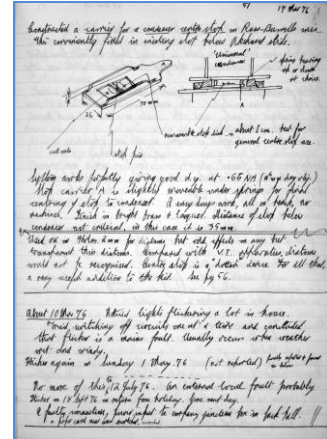 51 17 Mar 76
Constructed a carrier for a condenser centre stop on Ross-Barrells micr.
This conveniently fitted in existing slot below Ackland slide.
"Universal"
condenser
spring
up or down
at choice.
A
26
70 mm
A
removable stop disk - about 1 cm. but for
general centre stop use.
stop pin
System works perfectly giving good d.g. at .65 NA
Stop carrier A is slightly moveable under springs for final
centering of stop to condenser. A easy days work, all in hand, no
machines. Finish in bright brass & lacquer. Distance of stop below
condenser not critical, in this case it is 35mm.
Used on diatoms but odd effects in any but
transparent thin diatoms. Compared with V.I. diatoms
would not be recognised. Centre stop is a "dotted" device for all that,
a very useful addition to the kit. See pg 56.
About 10 Mar 76 Noticed lights flickering a lot in house.
switching off circuits one at a time and concluded
that flicker is a mains fault. Usually occurs when weather
wet and windy.
Flicker again on Sunday 1 May 76 (not reported)
No more of this, 12 July 76. An external local fault probably
Flicker on 18 Sept 76 on return from holiday. Gone next day.
A faulty connection, fuses input to company junction box in back hall.